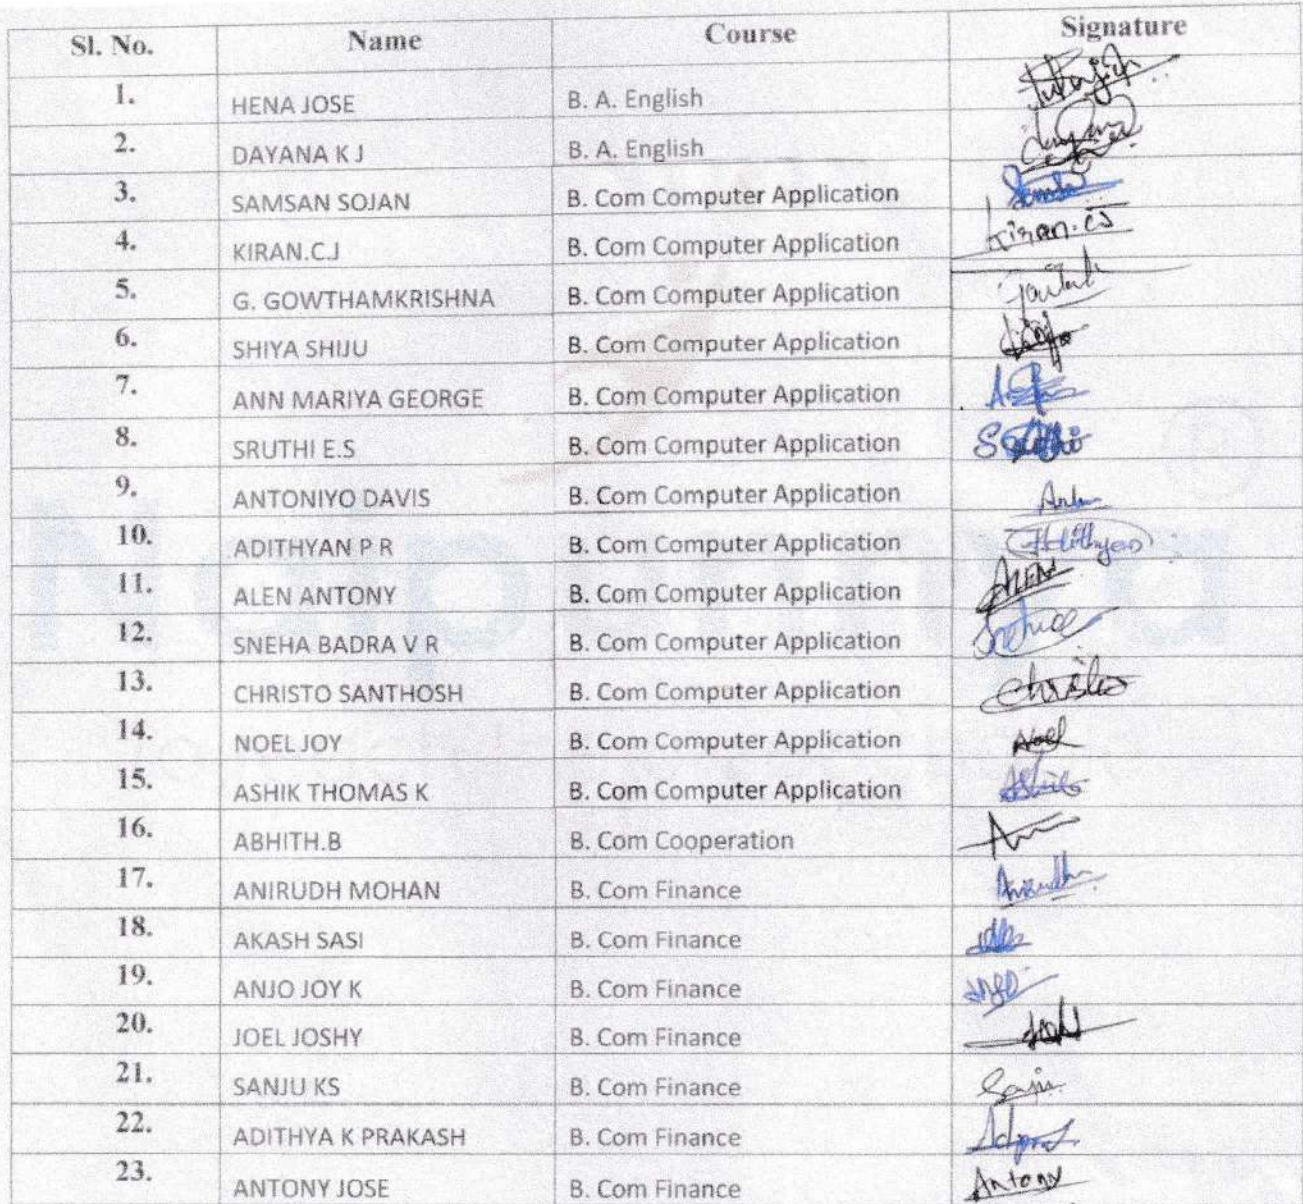 Sl. No. Name Course Signature
1. HENA JOSE B. A. English
2. DAYANA K J B. A. English
3. SAMSAN SOJAN B. Com Computer Application
4. KIRAN.C.J B. Com Computer Application Kiran.CJ
5. G. GOWTHAMKRISHNA B. Com Computer Application
6. SHIYA SHIJU B. Com Computer Application
7. ANN MARIYA GEORGE B. Com Computer Application
8. SRUTHI E.S B. Com Computer Application
9. ANTONIYO DAVIS B. Com Computer Application
10. ADITHYAN P R B. Com Computer Application Adithyan
11. ALEN ANTONY B. Com Computer Application ALEN
12. SNEHA BADRA V R B. Com Computer Application
13. CHRISTO SANTHOSH B. Com Computer Application Christo
14. NOEL JOY B. Com Computer Application Noel
15. ASHIK THOMAS K B. Com Computer Application
16. ABHITH.B B. Com Cooperation
17. ANIRUDH MOHAN B. Com Finance Anirudh
18. AKASH SASI B. Com Finance
19. ANJO JOY K B. Com Finance
20. JOEL JOSHY B. Com Finance
21. SANJU KS B. Com Finance
22. ADITHYA K PRAKASH B. Com Finance
23. ANTONY JOSE B. Com Finance Antony